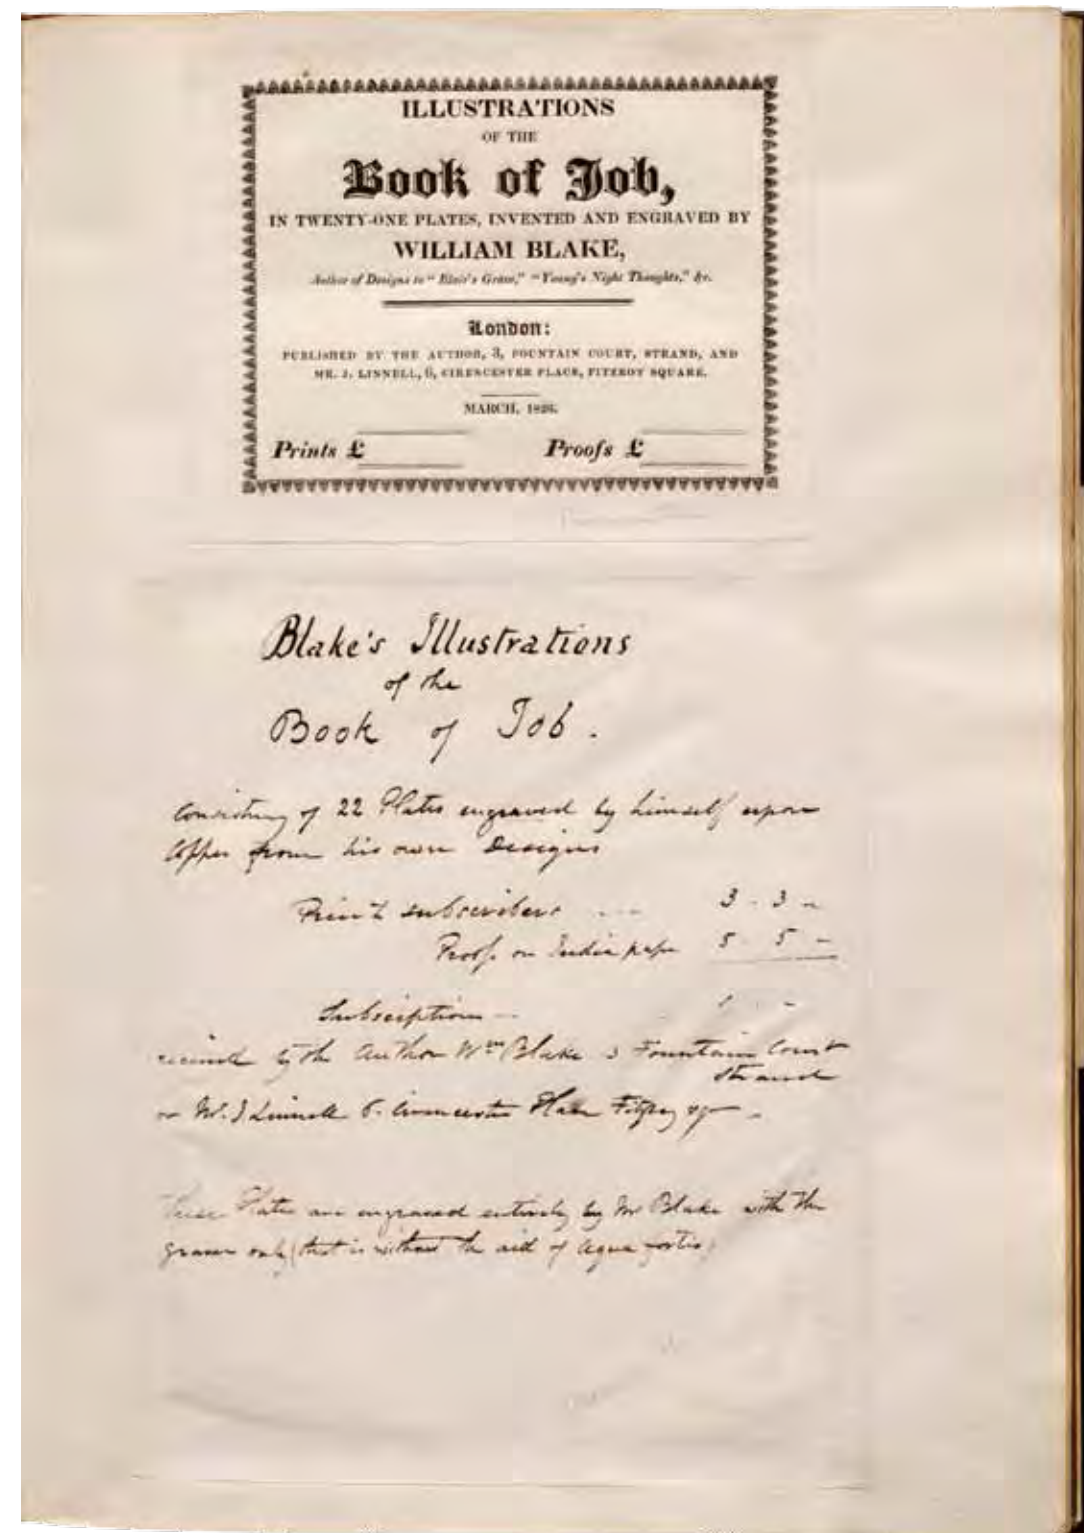 ILLUSTRATIONS
OF THE
Book of Job,
IN TWENTY-ONE PLATES, INVENTED AND ENGRAVED BY
WILLIAM BLAKE,
Author of Designs to "Blair's Grave," "Young's Night Thoughts," &c.
London:
PUBLISHED BY THE AUTHOR, 3, FOUNTAIN COURT, STRAND, AND
MR. J. LINNELL, 6, CIRENCESTER PLACE, FITZROY SQUARE.
MARCH, 1826.
Prints £ Proofs £
Blake's Illustrations
of the
Book of Job.
Consisting of 22 Plates engraved by himself upon
Copper from his own Designs
subscribers ... 3 - 3 -
Proofs on India paper 5 - 5 -
Subscriptions
by the Author Wm Blake 3 Fountain Court
Strand
or Mr. J Linnell 6. Cirencester Place Fitzroy sqr.
These Plates are engraved entirely by Mr Blake with the
graver only (that is without the aid of Aqua fortis)